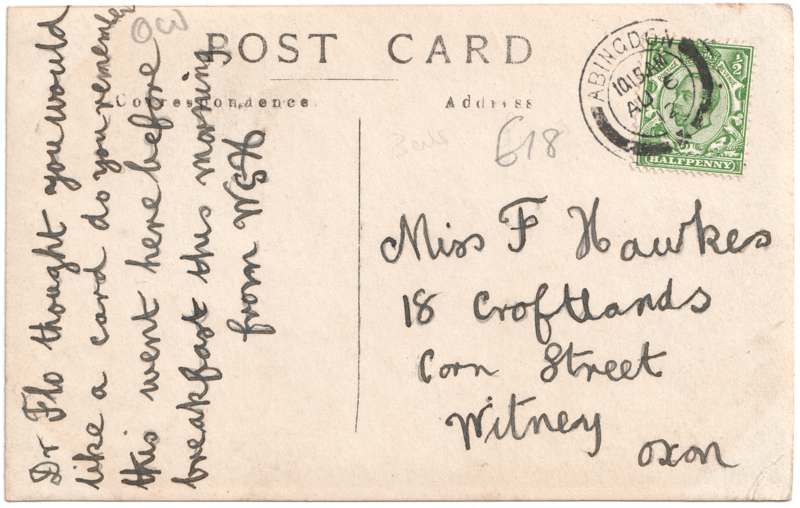 POST CARD
Correspondence.
Address
OW
£18
ABINGDON
10.15AM
AU 6
HALFPENNY
1/2
Dr Flo thought you would
like a card do you remember
this went here before
breakfast this morning
from WGH
Miss F Hawkes
18 Croftlands
Corn Street
Witney
oxon